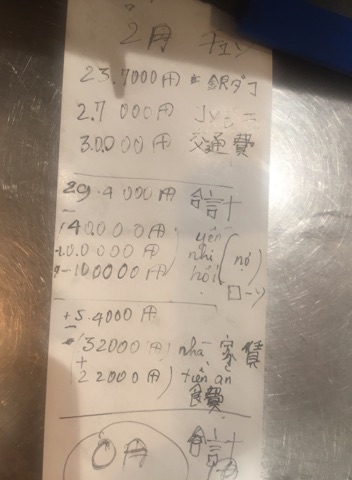 2月
23.7000円 銀ダコ
2.7 000円
30.000円 交通費
29.4 000円 合計
-140.000円 yến
-100.000円 nhi (nợ)
-100000円 hỏi ローン
+5.4000円
-32000円 nhà 家賃
+
22000円 tiền ăn
食費
0円 合計